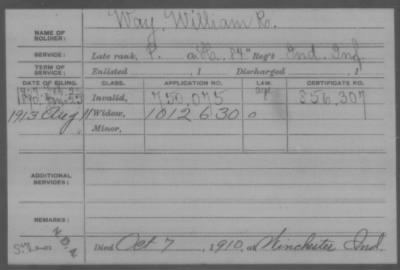 NAME OF SOLDIER: Way, William Ro.
SERVICE: Late rank, P. Co. 84" Reg't Ind. Inf.
TERM OF SERVICE: Enlisted , 1 Discharged , 1
DATE OF FILING. CLASS. APPLICATION NO. LAW. CERTIFICATE NO.
1890 Invalid, 750,075 856,307
1913 Aug 11 Widow, 1012630
Minor,
ADDITIONAL SERVICES:
REMARKS:
Died Oct 7, 1910, at Winchester Ind.